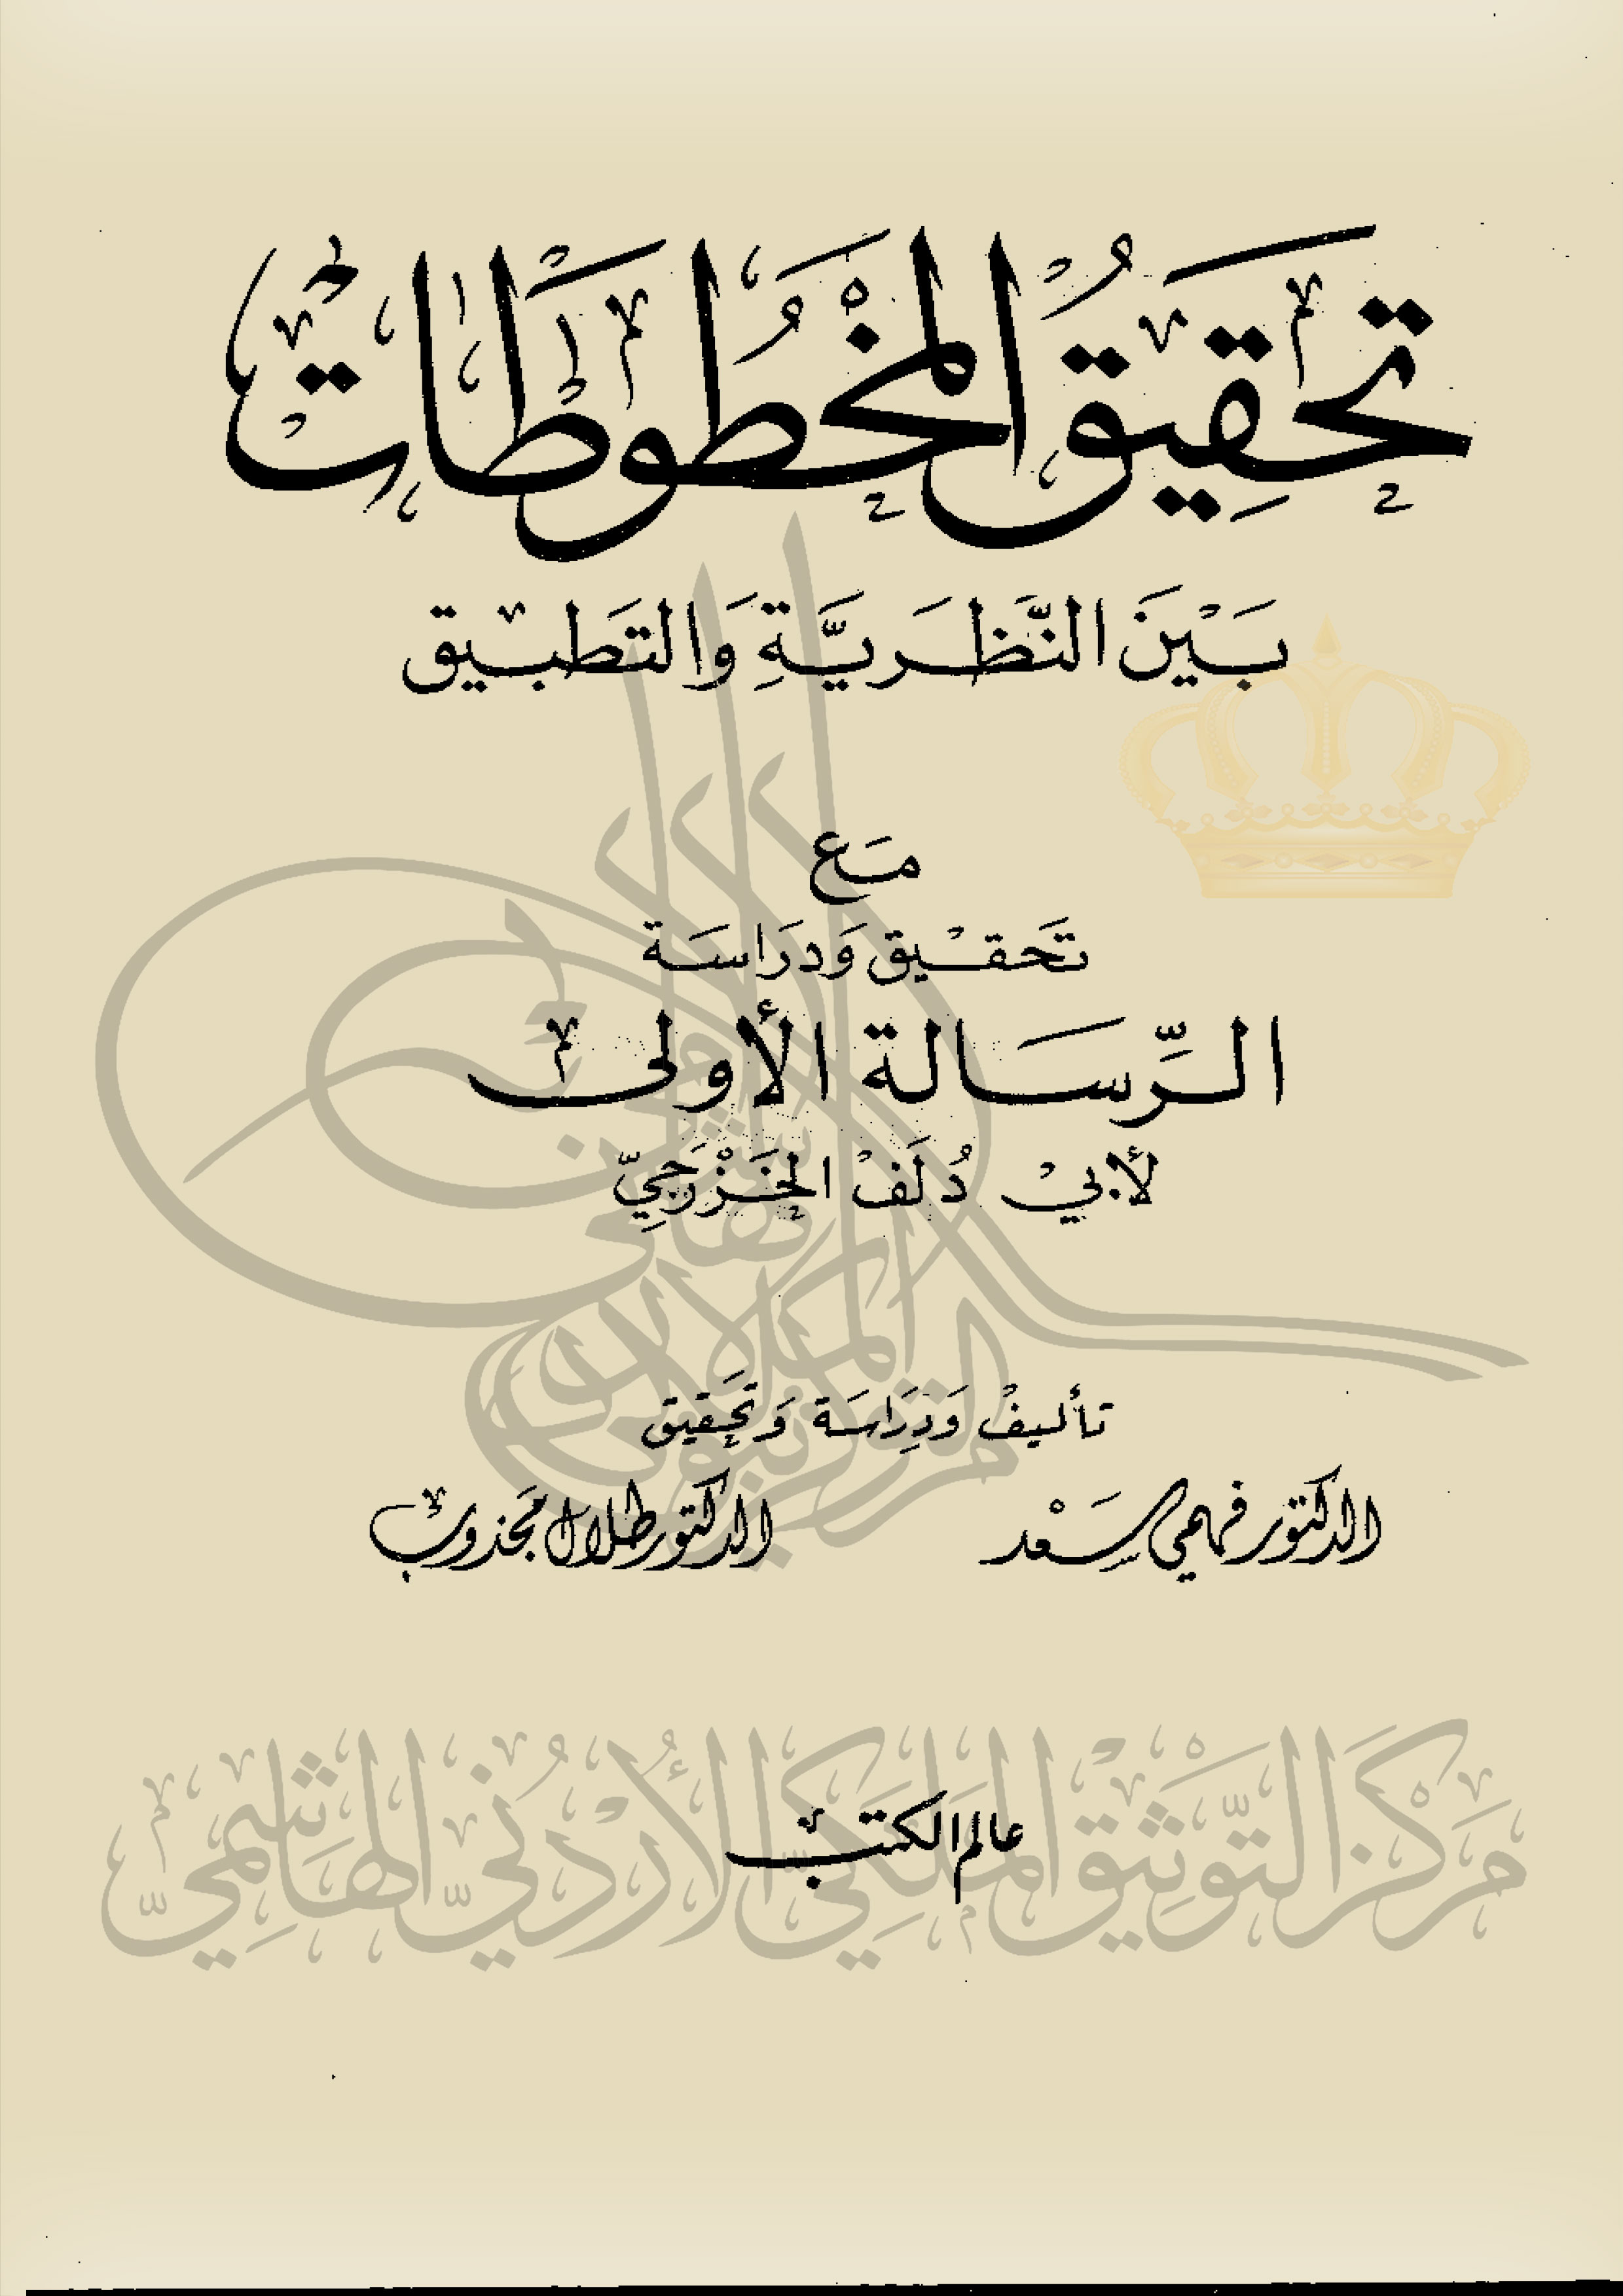 تَحقِيقُ المخْطُوطَات
بَيْنَ النَّظَرِيَّةِ وَالتَطبيق
مَع
تَحقيْق وَدرَاسَة
الرِّسَالة الأولى
لأبيْ دُلَفْ الخَزْرَجِيّ
تأليفْ وَدِرَاسَة وَتحَقيق
الدكتور فهمي سَعْد
الدكتور طلال مَجذوب
عالم الكتب
مَرْكَز التَّوْثِيق المَلَكِيّ الأُرْدُنِيّ الهَاشِمِيّ